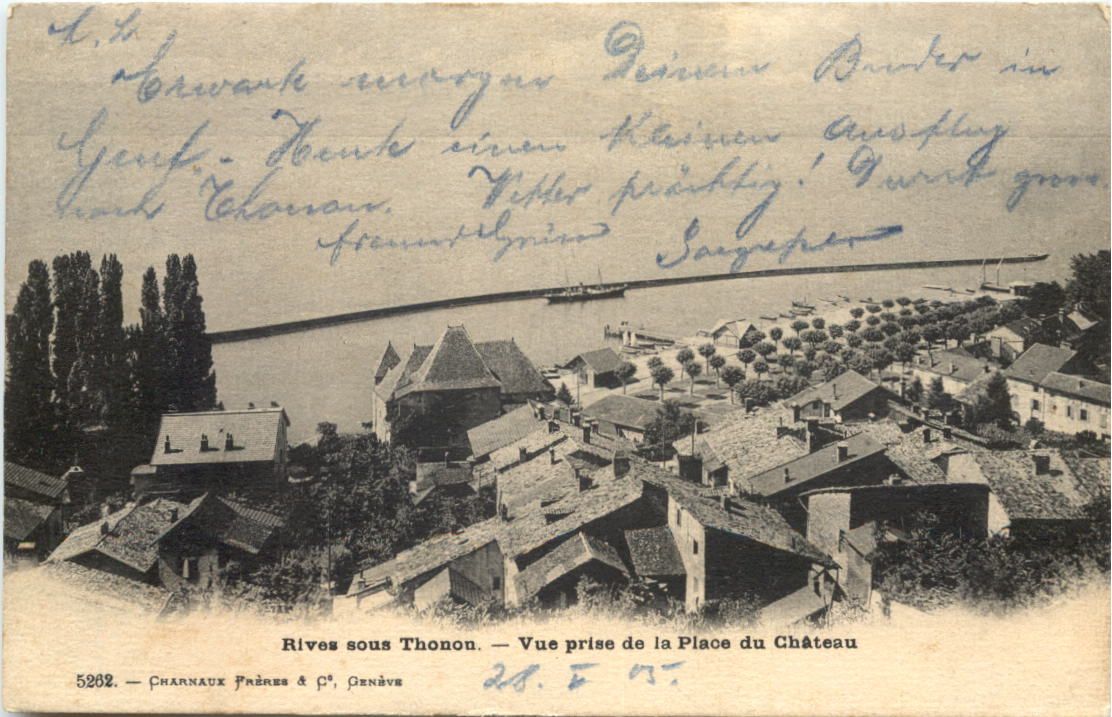 M. L.
Erwarte morgen Deinen Bruder in
Genf. - Heute einen kleinen Ausflug
nach Thonon. Wetter prächtig!
freundl. Gruss
Rives sous Thonon. — Vue prise de la Place du Château
5262. — CHARNAUX FRÈRES & Cº, GENÈVE
28. V 05.